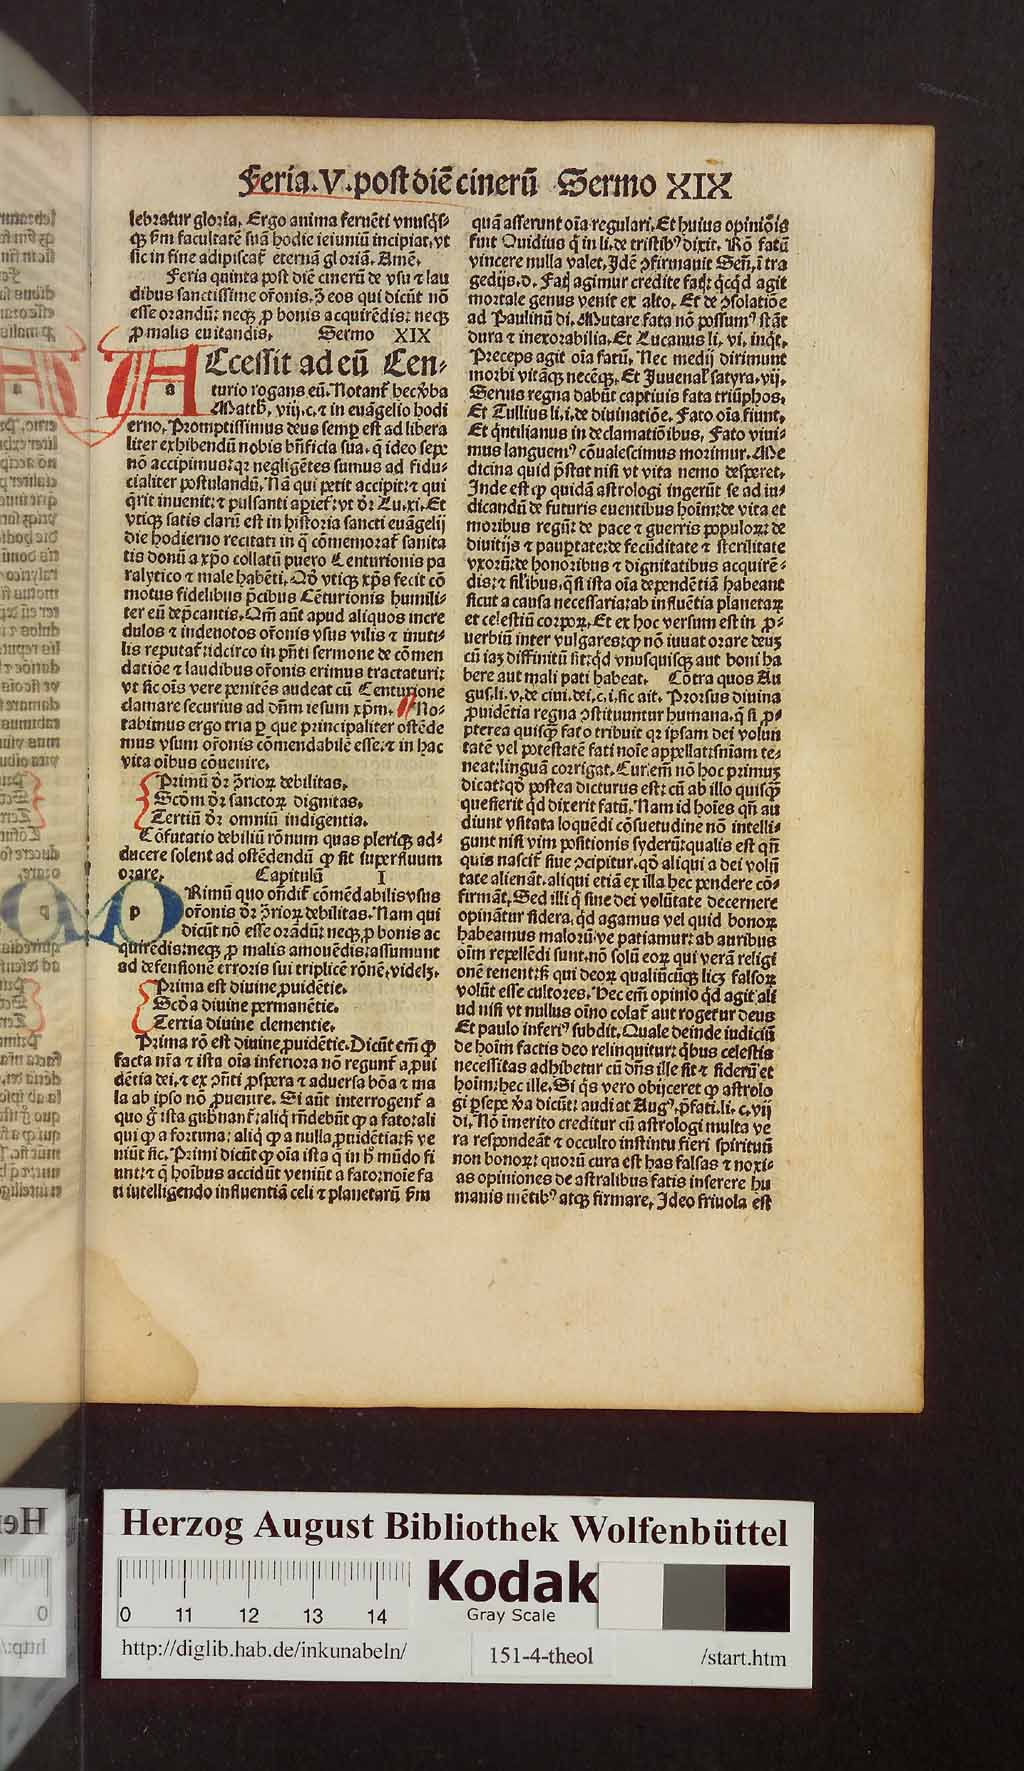 Feria.V.post diē cinerū Sermo XIX
lebratur gloria. Ergo anima feruēti vnusq̄s⸗
q̨ fm facultatē suā hodie ieiuniū incipiat, vt
sic in fine adipiscat̄ eternā gloriā. Amē.
Feria quinta post diē cinerū de vsu ⁊ lau
dibus sanctissime or̄onis. ɔ̄ eos qui dicūt nō
esse orandū: neqꝫ ꝓ bonis acquirēdis: neqꝫ
ꝓ malis euitandis. Sermo XIX
ACcessit ad eū Cen⸗
turio rogans eū. Notant̄ hec v̄ba
Matth̄. viij. c. ⁊ in euāgelio hodi
erno. Promptissimus deus semꝑ est ad libera
liter exhibendū nobis bn̄ficia sua. q̄ ideo sepe
nō accipimus: qꝛ negligētes sumus ad fidu⸗
cialiter postulandū. Nā qui petit accipit: ⁊ qui
q̄rit inuenit: ⁊ pulsanti aꝑiet̄: vt dr̄ Lu. xi. Et
vtiqꝫ satis clarū est in historia sancti euāgelij
die hodierno recitati in q̄ cōmemorat̄ sanita
tis donū a xp̄o collatū puero Centurionis pa
ralytico ⁊ male habēti. Qd̄ vtiqꝫ xp̄s fecit cō
motus fidelibus p̄cibus Cēturionis humili⸗
ter eū dep̄cantis. Qm̄ aūt apud aliquos incre
dulos ⁊ indeuotos or̄onis vsus vilis ⁊ inuti⸗
lis reputat̄: idcirco in pn̄ti sermone de cōmen
datiōe ⁊ laudibus or̄onis erimus tractaturi:
vt sic oīs vere penitēs audeat cū Centurione
clamare securius ad dn̄m iesum xp̄m. No⸗
tabimus ergo tria ꝑ que principaliter ostēde
mus vsum or̄onis cōmendabilē esse: ⁊ in hac
vita oībus cōuenire.
Primū dr̄ ɔ̄rioꝝ debilitas.
Scd̄m dr̄ sanctoꝝ dignitas.
Tertiū dr̄ omniū indigentia.
Cōfutatio debiliū rōnum quas pleriqꝫ ad⸗
ducere solent ad ostēdendū ꝙ sit superfluum
orare. Capitulū I
PRimū quo on̄dit̄ cōmēdabilis vsus
or̄onis dr̄ ɔ̄rioꝝ debilitas. Nam qui
dicūt nō esse orādū: neqꝫ ꝓ bonis ac
quirēdis: neqꝫ ꝓ malis amouēdis: assumunt
ad defensionē erroris sui triplicē rōnē, videlꝫ.
Prima est diuine ꝓuidētie.
Scd̄a diuine permanētie.
Tertia diuine clementie.
Prima rō est diuine ꝓuidētie. Dicūt em̄ ꝙ
facta nr̄a ⁊ ista oīa inferiora nō regunt̄ a ꝓui
dētia dei, ⁊ ex ɔn̄ti ꝓspera ⁊ aduersa bōa ⁊ ma
la ab ipso nō ꝓuenire. Si aūt interrogent̄ a
quo g̊ ista gub̄nant̄: aliq̄ rn̄debūt ꝙ a fato: ali
qui ꝙ a fortuna: aliq̄ ꝙ a nulla ꝓuidētia: sꝫ ve
niūt sic. Primi dicūt ꝙ oīa ista q̄ in h̄ mūdo fi
unt: ⁊ q̄ hoībus accidūt veniūt a fato: noīe fa
ti intelligendo influentiā celi ⁊ planetarū fm
quā asserunt oīa regulari. Et huius opiniōis
fuit Ouidius q̄ in li. de tristibꝰ dixit. Rō fatū
vincere nulla valet. Idē ɔfirmauit Sen̄. ī tra
gedijs. d. Fatꝭ agimur credite fatꝭ: q̄cq̄d agit
mortale genus venit ex alto. Et de ɔsolatiōe
ad Paulinū di. Mutare fata nō possumꝰ stāt
dura ⁊ inexorabilia. Et Lucanus li. vi. inq̄t.
Preceps agit oīa fatū. Nec medij dirimunt
morbi vitāqꝫ necēqꝫ. Et Juuenal̄ satyra. vij.
Seruis regna dabūt captiuis fata triūphos.
Et Tullius li. i. de diuinatiōe. Fato oīa fiunt.
Et q̄ntilianus in declamatiōibus. Fato viui⸗
mus languemꝰ cōualescimus morimur. Me
dicina quid p̄stat nisi vt vita nemo desperet.
Inde est ꝙ quidā astrologi ingerūt se ad iu⸗
dicandū de futuris euentibus hoīm: de vita et
moribus regū: de pace ⁊ guerris populoꝝ: de
diuitijs ⁊ pauꝑtate: de fecūditate ⁊ sterilitate
vxorū: de honoribus ⁊ dignitatibus acquirē⸗
dis: ⁊ sil̄ibus. q̄si ista oīa depēdētiā habeant
sicut a causa necessaria: ab influētia planetaꝝ
et celestiū corpoꝝ. Et ex hoc versum est in ꝓ⸗
uerbiū inter vulgares: ꝙ nō iuuat orare deuꝫ
cū iaꝫ diffinitū sit: q̄d vnusquisqꝫ aut boni ha
bere aut mali pati habeat. Cōtra quos Au
gus. li. v. de ciui. dei. c. i. sic ait. Prorsus diuina
ꝓuidētia regna ɔstituuntur humana. q̄ si ꝓ⸗
pterea quisqꝫ fato tribuit qꝛ ipsam dei volun
tatē vel potestatē fati noīe appellat: sn̄iam te⸗
neat: linguā corrigat. Cur em̄ nō hoc primuꝫ
dicat: qd̄ postea dicturus est: cū ab illo quisqꝫ
quesierit q̄d dixerit fatū. Nam id hoīes qn̄ au
diunt vsitata loquēdi cōsuetudine nō intelli⸗
gunt nisi vim positionis syderū: qualis est qn̄
quis nascit̄ siue ɔcipitur. qd̄ aliqui a dei volū
tate alienāt. aliqui etiā ex illa hec pendere cō⸗
firmāt. Sed illi q̄ sine dei volūtate decernere
opinātur sidera, q̄d agamus vel quid bonoꝝ
habeamus malorū ve patiamur: ab auribus
oīm repellēdi sunt. nō solū eoꝝ qui verā religi
onē tenent: sꝫ qui deoꝝ qualiūcūqꝫ licꝫ falsoꝝ
volūt esse cultores. Hec em̄ opinio q̄d agit ali
ud nisi vt nullus oīno colat̄ aut rogetur deus
Et paulo inferiꝰ subdit. Quale deinde iudiciū
de hoīm factis deo relinquitur: q̄bus celestis
necessitas adhibetur cū dn̄s ille sit ⁊ siderū et
hoīm: hec ille. Si q̄s vero obijceret ꝙ astrolo
gi ꝑsepe v̄a dicūt: audiat Augꝰ. p̄fati. li. c. vij
di. Nō imerito creditur cū astrologi multa ve
ra respondeāt ⁊ occulto instintu fieri spirituū
non bonoꝝ: quorū cura est has falsas ⁊ noxi⸗
as opiniones de astralibus fatis inserere hu
manis mētibꝰ atqꝫ firmare. Ideo friuola est
Herzog August Bibliothek Wolfenbüttel
0 11 12 13 14
Kodak
Gray Scale
http://diglib.hab.de/inkunabeln/
151-4-theol
/start.htm